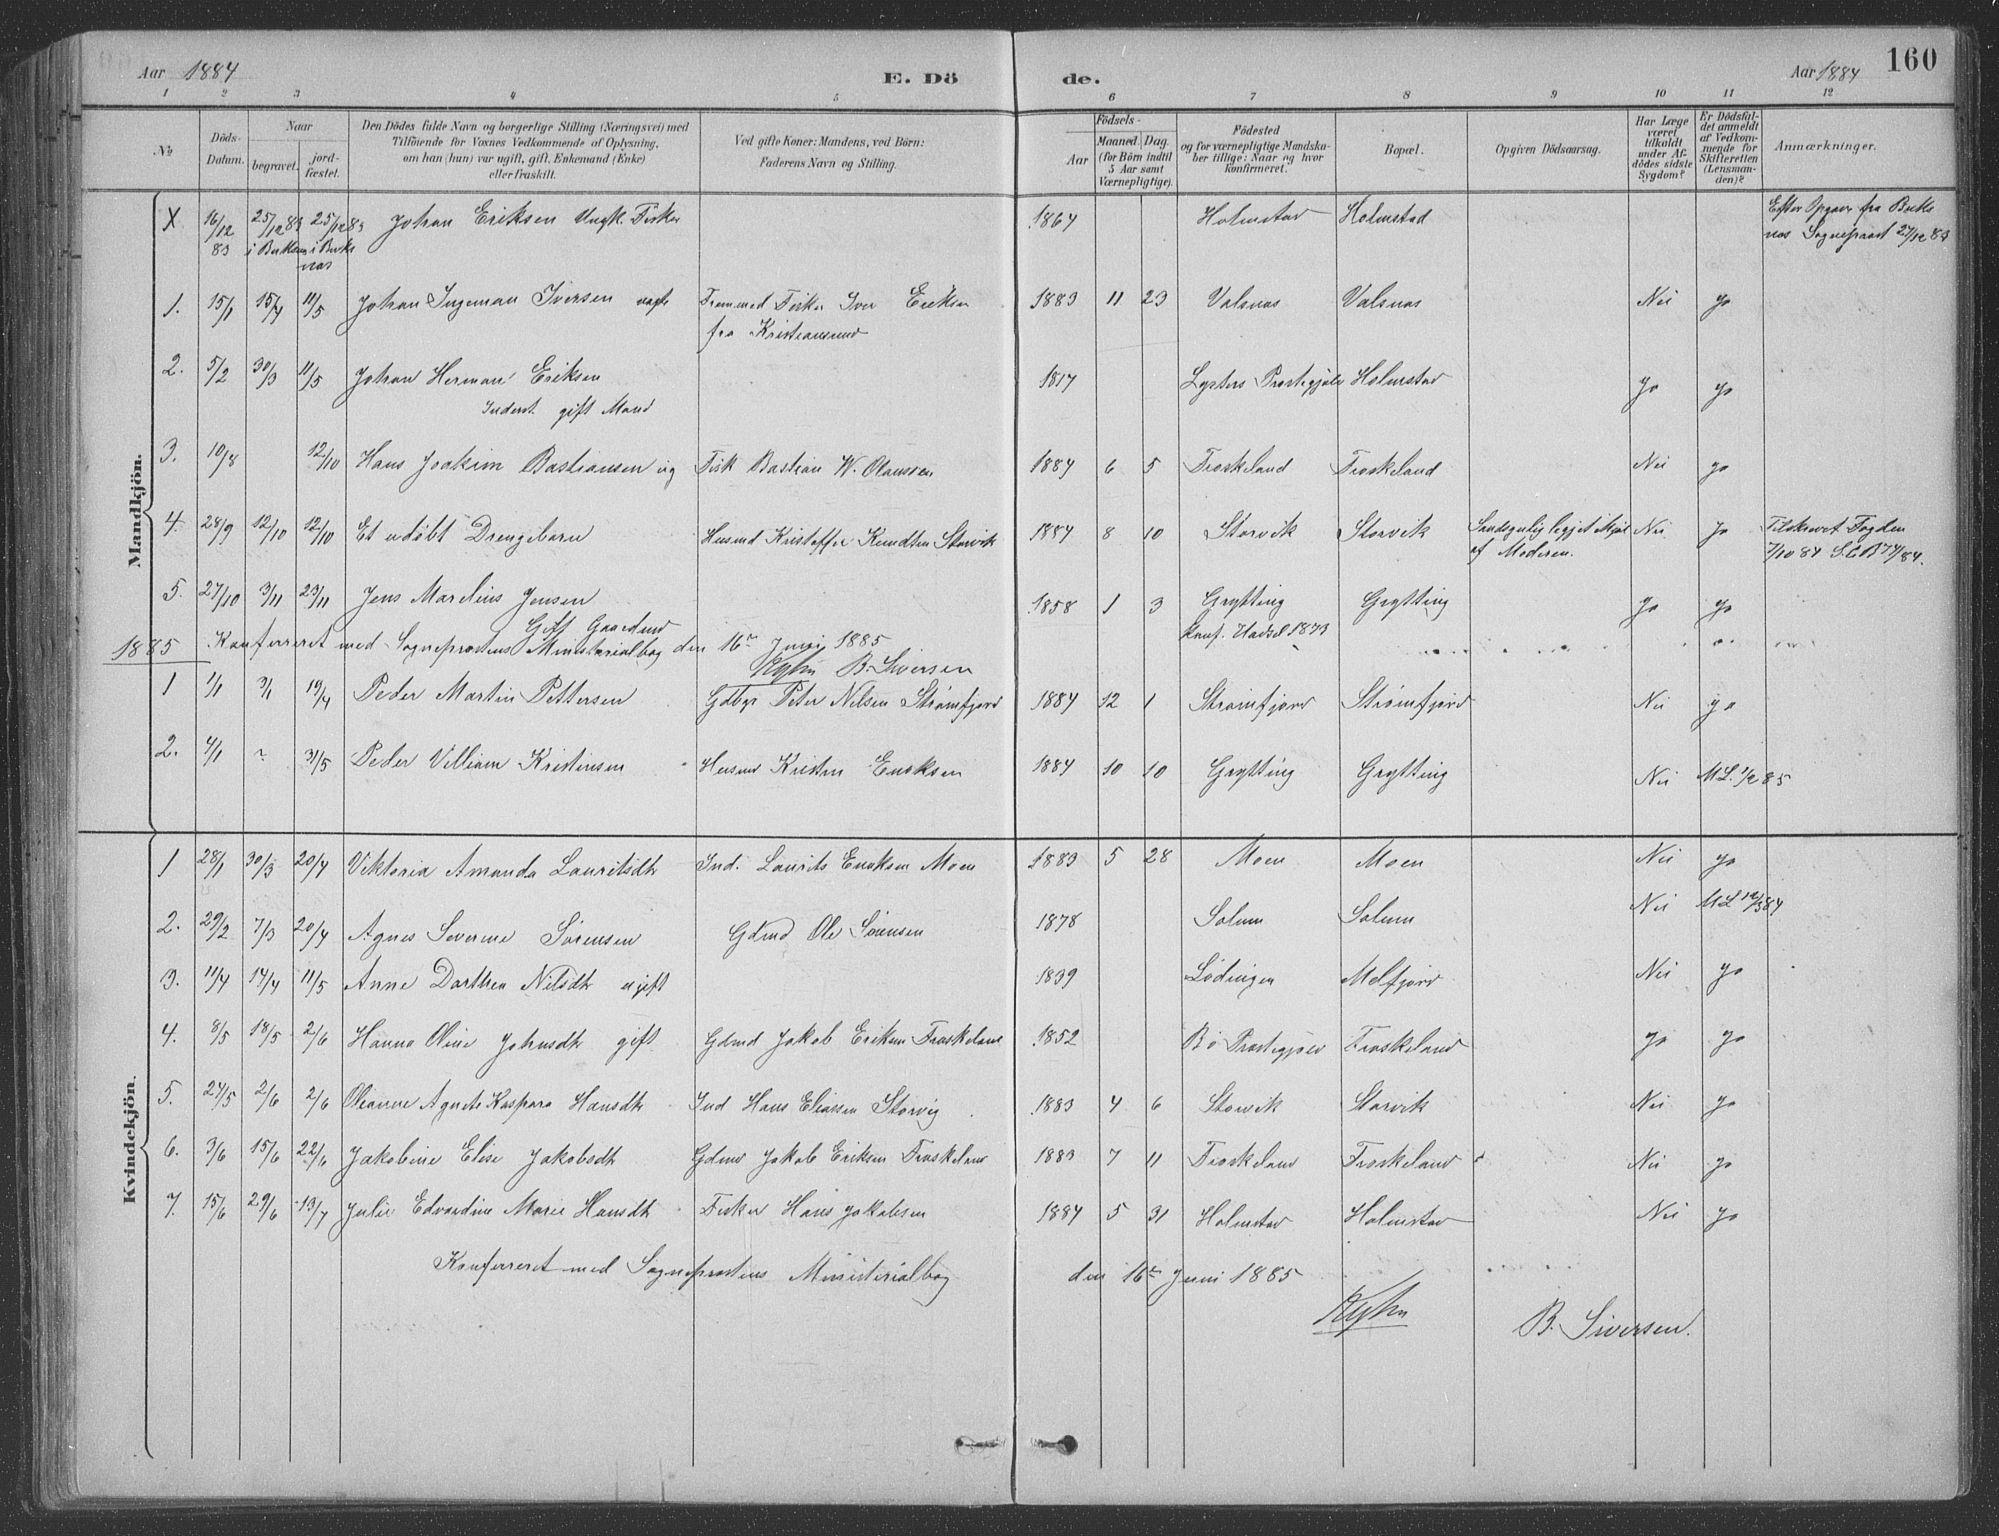 Aar 1884
E. Dö
de.
Aar 1884
160
1 2 3 4 5 6 7 8 9 10 11 12
No
Döds-Datum.
Naar
begravet.
jordfæstet.
Den Dödes fulde Navn og borgerlige Stilling (Næringsvei) med
Tilföiende for Voxnes Vedkommende af Oplysning,
om han (hun) var ugift, gift, Enkemand (Enke)
eller fraskilt.
Ved gifte Koner: Mandens, ved Börn:
Faderens Navn og Stilling.
Födsels-
Aar
Maaned. Dag.
(for Börn indtil
5 Aar samt
Værnepligtige).
Födested
og for værnepligtige Mandskaber tillige: Naar og hvor
konfirmeret.
Bopæl.
Opgiven Dödsaarsag.
Har Læge været tilkaldt under Afdödes sidste Sygdom?
Er Dödsfaldet anmeldt af Vedkommende for Skifteretten (Lensmanden)?
Anmærkninger.
Mandkjön.
X 16/12 83 25/12 83 i Buksnæs 25/12 83 i Buksnas Johan Eriksen Ungk. Fisker 1864 Holmstad Holmstad Efter Opgave fra Buksnas Sogneprest 27/12 83
1. 15/1 15/4 11/5 Johan Ingeman Iversen uægte Fremmed Fisker Iver Eriksen fra Kristiansund 1883 11 23 Valsnas Valsnas Nei ja
2. 5/2 30/3 11/5 Johan Herman Eriksen Inderst. gift Mand 1817 Lysters Prestegjeld Holmstad Ja ja
3. 10/8 12/10 Hans Joakim Bastiansen ug Fisk Bastian W. Olaussen 1884 6 5 Froskeland Froskeland Nei ja
4. 28/9 12/10 12/10 Et udøbt Drengebarn Husmd Kristoffer Knudtsen Storvik 1884 8 10 Storvik Storvik Sandsynlig legget ihjel af Moderen. Nei Ja Tilskrevet Fogden 7/10 84 S.C.B 74/84.
5. 27/10 3/11 23/11 Jens Marelius Jensen Gift Gaardmd 1858 1 3 Grytting konf. Hadsel 1873 Grytting ja ja
1885 Konferreret med Sogneprestens Ministerialbog den 16de Juni 1885
B. Siversen
1 1/1 3/1 19/4 Peder Martin Pettersen Gdbgr Peter Nilsen Strømfjord 1884 12 1 Strømfjord Strømfjord Nei ja
2. 4/1 31/5 Peder Villiam Kristensen Husmd Kristen Enoksen 1884 10 10 Grytting Grytting Nei ML. 1/2 85
Kvindekjön.
1 28/1 30/3 20/4 Viktoria Amanda Lauritsdtr Ind. Laurits Enoksen Moen 1883 5 28 Moen Moen Nei ja
2. 29/2 7/3 20/4 Agnes Severine Sørensen Gdmd Ole Sørensen 1878 Solum Solum Nei ML 12/3 84
3. 11/4 14/4 11/5 Anne Dorthea Nilsdtr ugift 1839 Lødingen Melfjord Nei ja
4. 8/5 18/5 2/6 Hanna Oline Johnsdtr gift Gdmd Jakob Eriksen Froskeland 1852 Bø Prestegjeld Froskeland ja ja
5. 24/5 2/6 2/6 Oleanne Agnete Kaspara Hansdtr Ind Hans Eliassen Storvig 1883 4 6 Storvik Storvik Nei ja
6. 3/6 15/6 22/6 Jakobine Elise Jakobsdtr Gdmd Jakob Eriksen Froskeland 1883 7 11 Froskeland Froskeland Nei ja
7. 15/6 29/6 13/7 Julie Edvardine Marie Hansdtr Fisker Hans Jakobsen 1884 5 31 Holmstad Holmstad Nei ja
Konferreret med Sogneprestens Ministerialbog den 16de Juni 1885
B. Siversen.